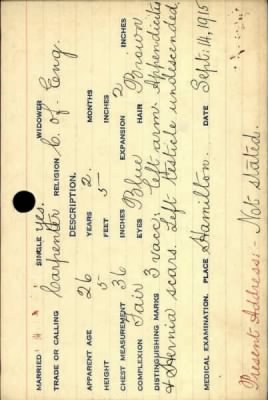 MARRIED SINGLE Yes. WIDOWER
TRADE OR CALLING Carpenter RELIGION C. of. Eng.
DESCRIPTION.
APPARENT AGE 26 YEARS 2 MONTHS
HEIGHT 5 FEET 5 INCHES
CHEST MEASUREMENT 36 INCHES EXPANSION 2 INCHES
COMPLEXION Fair EYES Blue HAIR Brown
DISTINGUISHING MARKS 3 vacc. left arm. Appendicitis
& Hernia scars. Left testicle undescended,
MEDICAL EXAMINATION. PLACE Hamilton. DATE Sept. 14, 1915
Present Address:- Not stated.